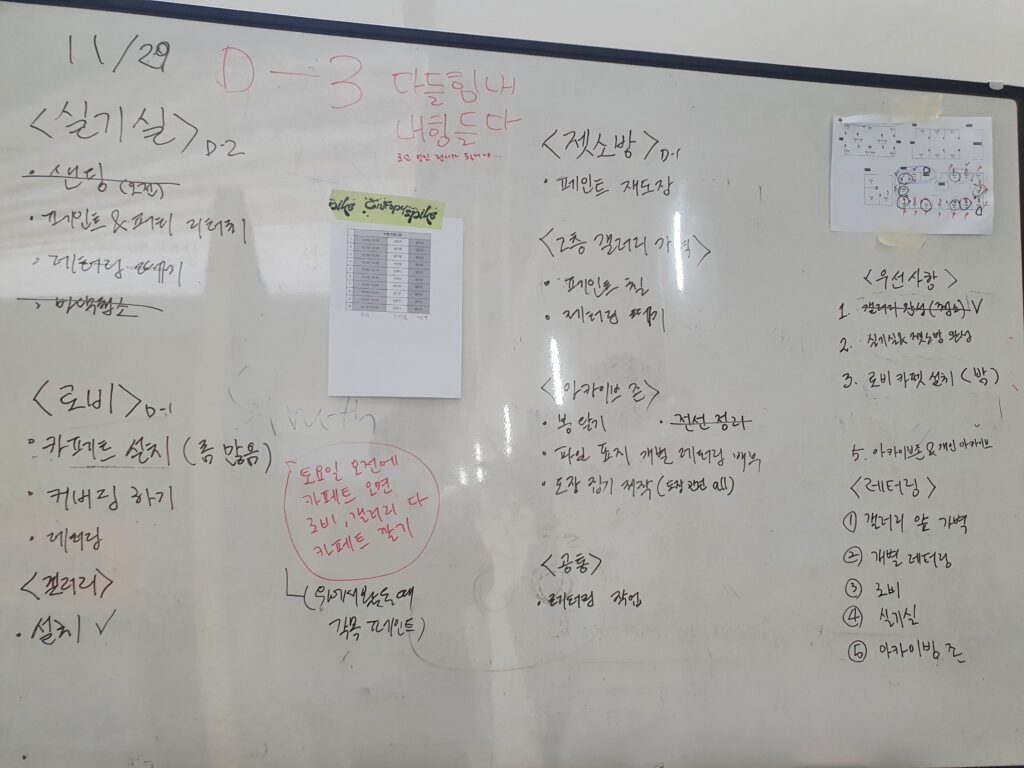 11/29
D-3
다들힘내
내힘듣다
<실기실> D-2
· 샌딩 (오전)
· 페인트&퍼티 리터치
· 레터링 떼기
<로비> D-1
· 카페트 설치 (좀 많음)
· 커버링 하기
· 레터링
<갤러리>
· 설치 ✓
토요일 오전에
카페트 오면
로비, 갤러리 다
카페트 깔기
각목 페인트)
<젯소방> D-1
· 페인트 재도장
<2층 갤러리 가벽>
· 페인트 칠
· 레터링 떼기
<아카이브 존>
· 봉 달기
· 전선 정리
· 파일 표지 개별 레터링 배부
· 도장 집기 제작 (도장 관련 all)
<공통>
· 레터링 작업
<우선사항>
1. 갤러리 완성 ✓
2. 실기실& 젯소방 완성
3. 로비 카펫 설치 (밖)
5. 아카이브존 & 개인 아카이브
<레터링>
① 갤러리 앞 가벽
② 개별 레터링
③ 로비
④ 실기실
⑤ 아카이빙 존